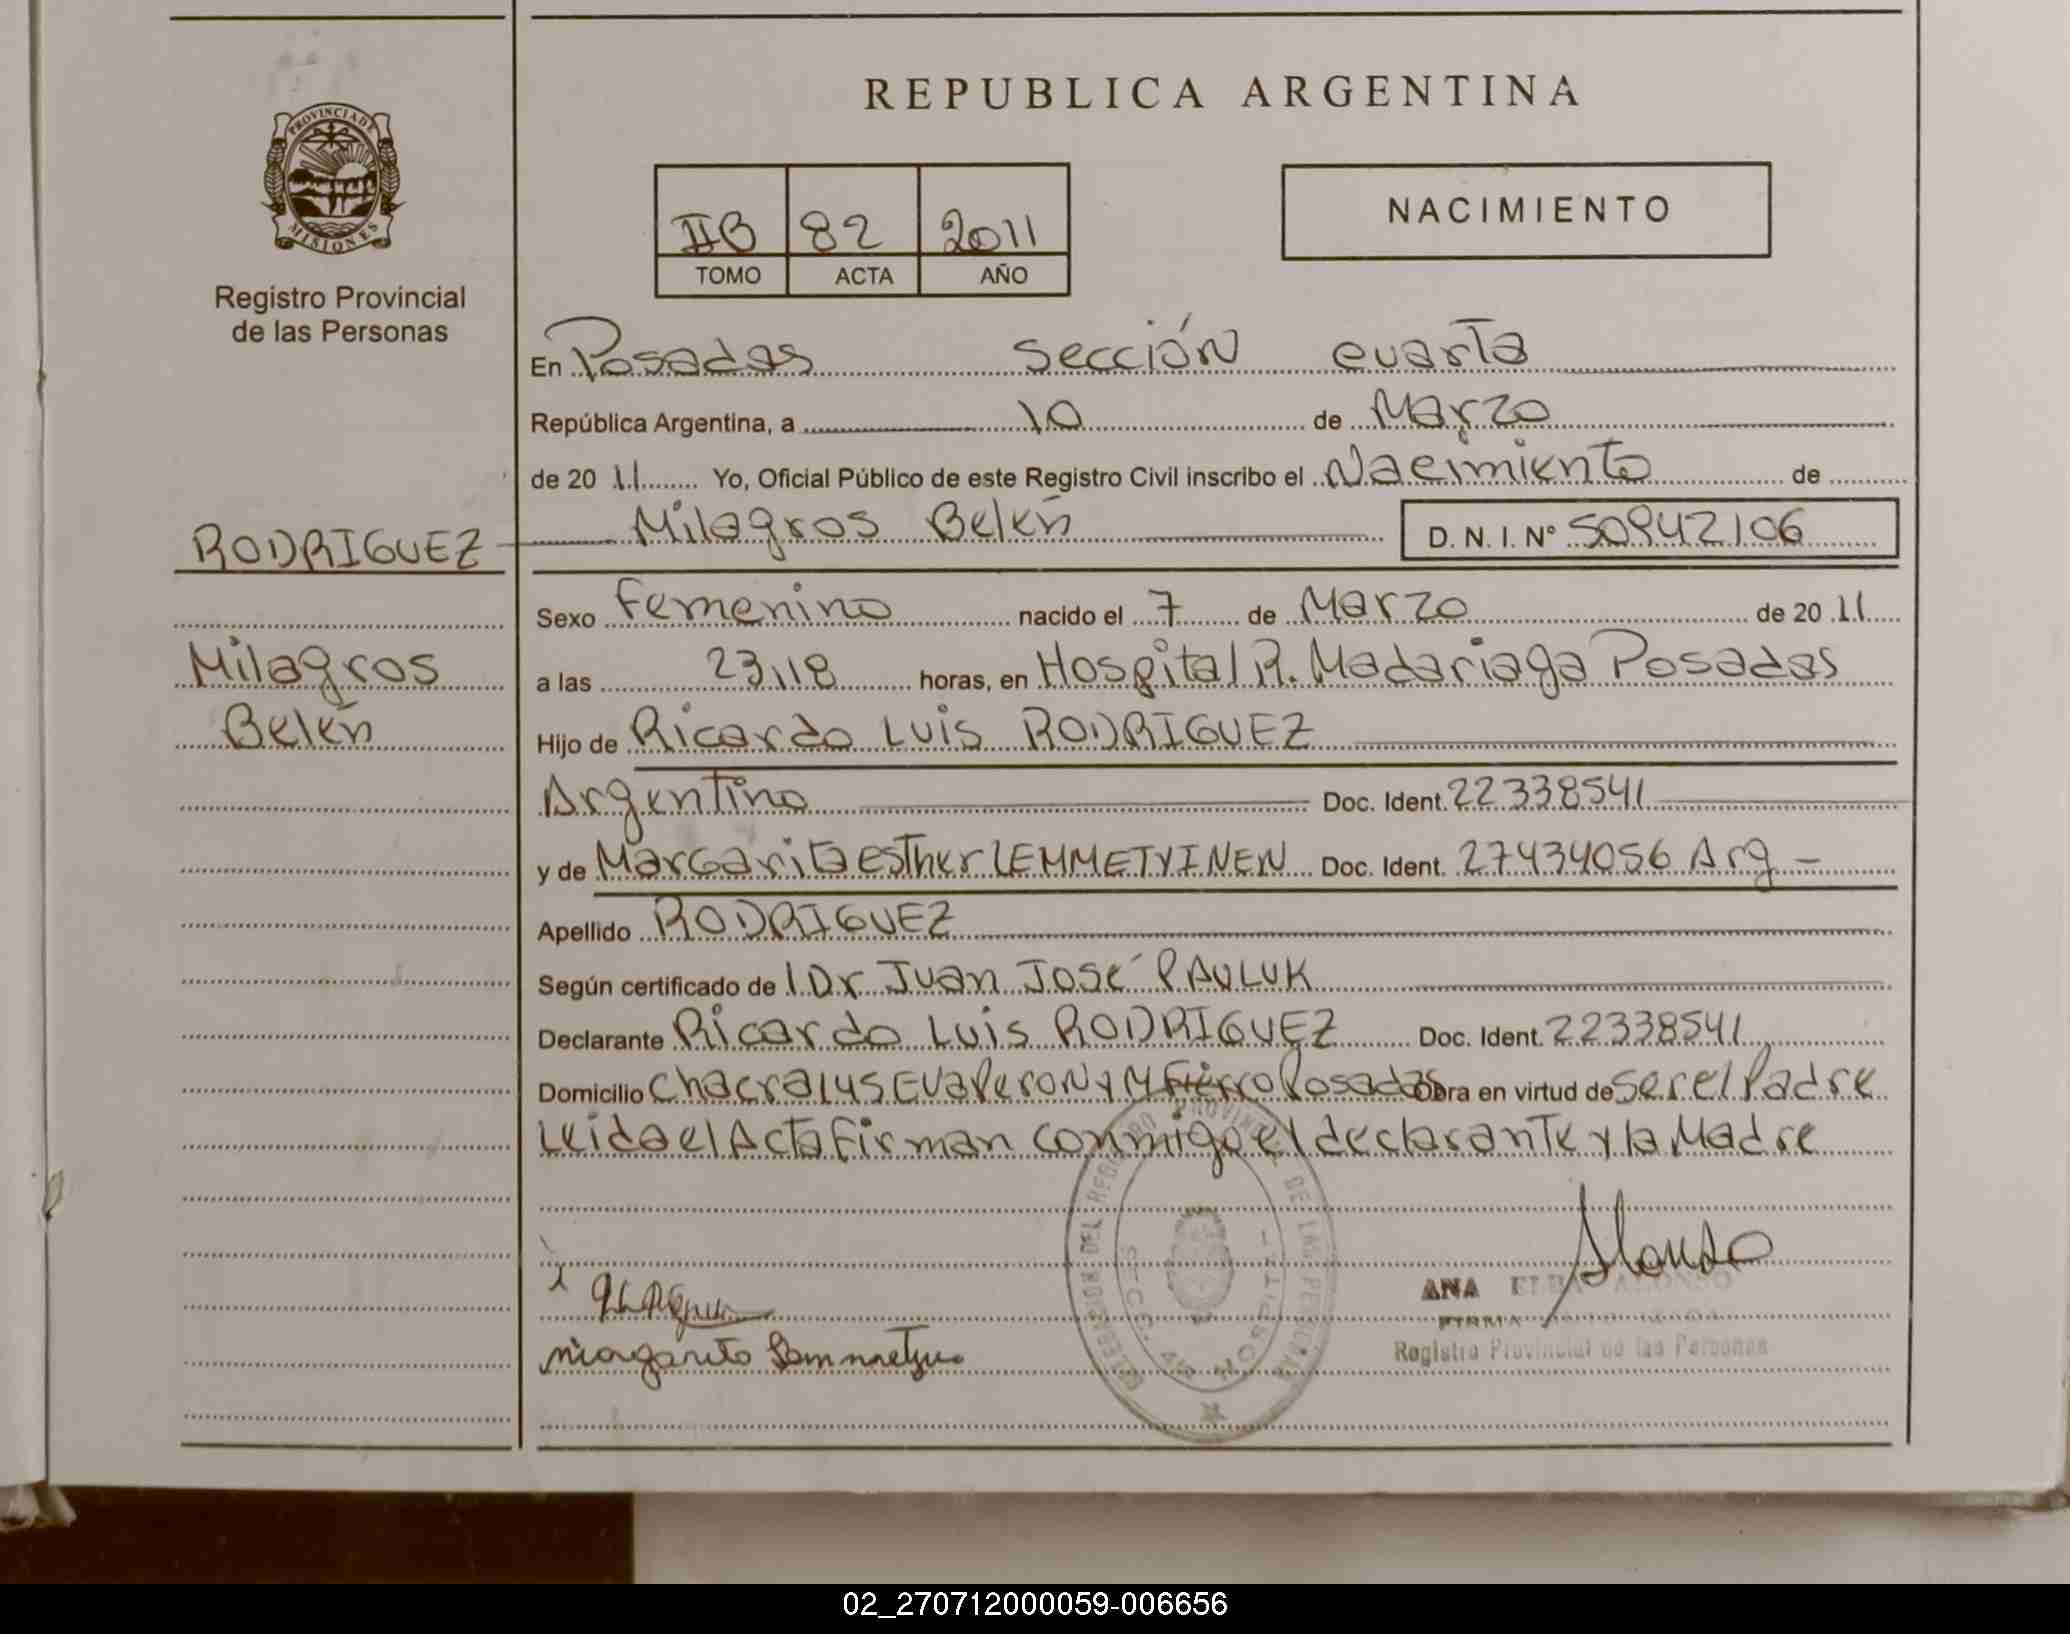 PROVINCIA DE
MISIONES
Registro Provincial
de las Personas
RODRIGUEZ
Milagros
Belén
REPUBLICA ARGENTINA
IIB 82 2011
TOMO ACTA AÑO
NACIMIENTO
En Posadas sección cuarta
República Argentina, a 10 de Marzo
de 2011 Yo, Oficial Público de este Registro Civil inscribo el Nacimiento de
Milagros Belén D. N. I. Nº 50942106
Sexo Femenino nacido el 7 de Marzo de 2011
a las 23,18 horas, en Hospital R. Madariaga Posadas
Hijo de Ricardo Luis RODRIGUEZ
Argentino Doc. Ident. 22338541
y de Margarita Esther LEMMETYINEN Doc. Ident. 27434056 Arg -
Apellido RODRIGUEZ
Según certificado de l Dr Juan José PAULUK
Declarante Ricardo Luis RODRIGUEZ Doc. Ident. 22338541
Domicilio Chacra 145 Eva Peron y M Fierro Posadas Obra en virtud de ser el Padre
Leida el Acta Firman conmigo el declarante y la Madre
DEL REGISTRO PROVINCIAL DE LAS PERSONAS
HOSPITAL
Alonso
ANA ELBA ALONSO
FIRMA AUTORIZADA
Registro Provincial de las Personas
Margarita Lemmetyinen
02_270712000059-006656